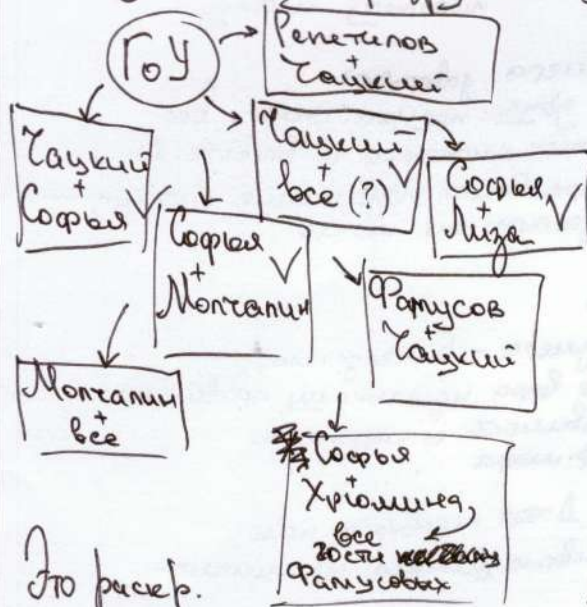 ГоУ
Репетилов
+
Чацкий
Чацкий
+
Софья
Чацкий
+
все (?)
Софья
+
Лиза
Софья
+
Молчалин
Фамусов
+
Чацкий
Молчалин
+
все
Софья
+
Хрюмина,
все
гости
Фамусовых
Это раскр.